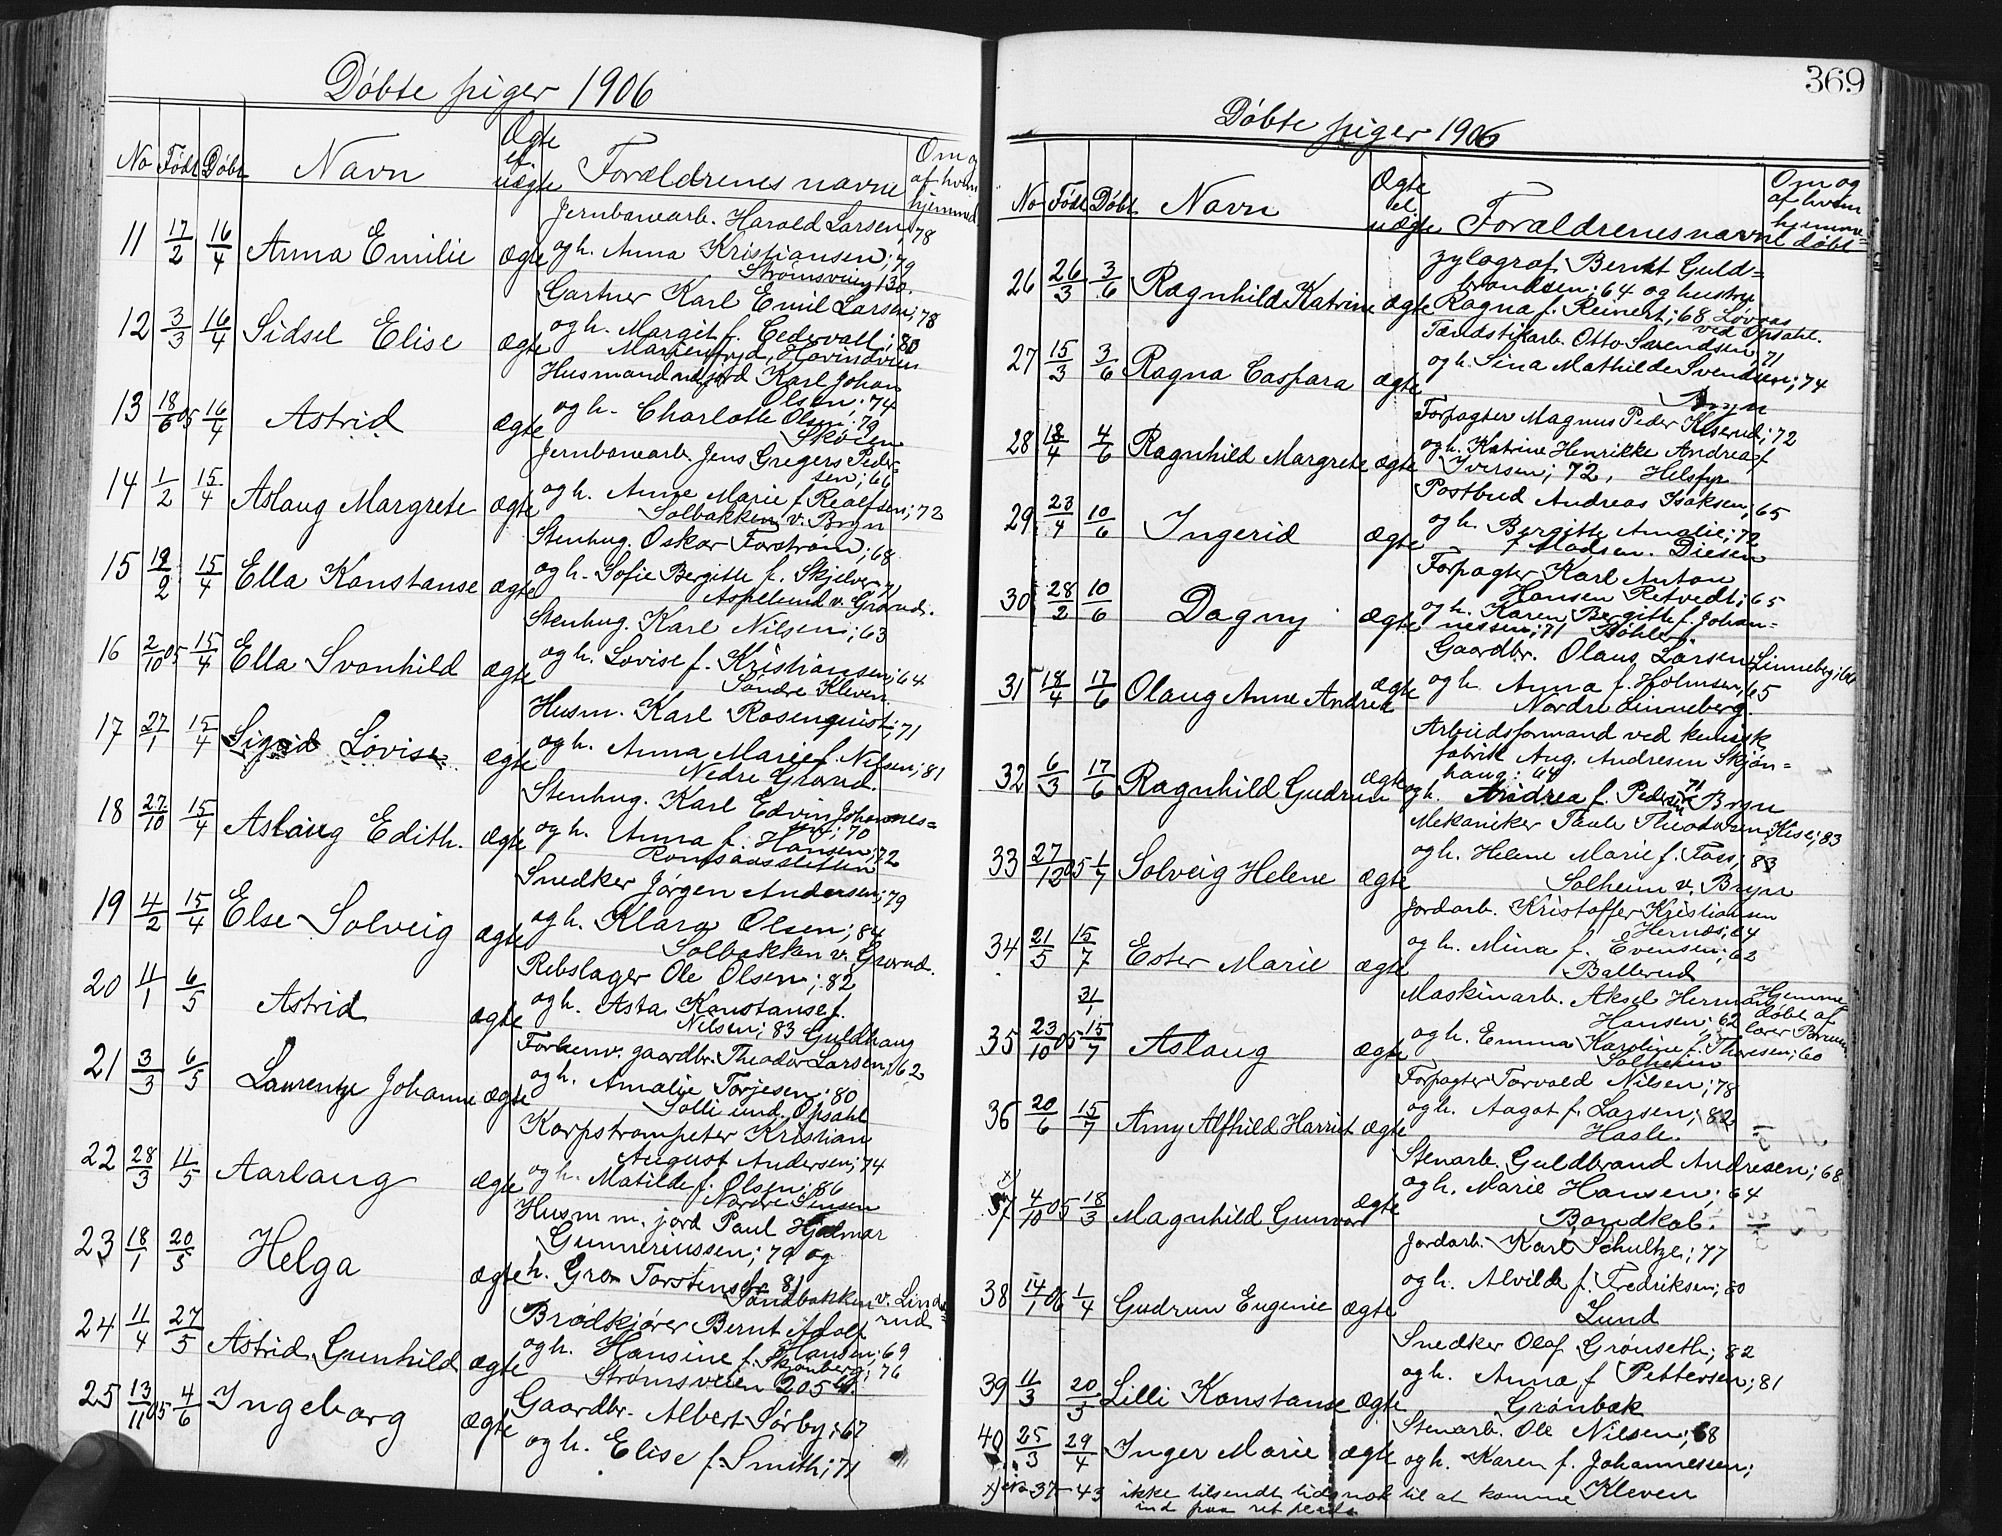 Döbte piger 1906
No Födt Döbt Navn Ægte el. uægte Forældrenes navne Om og af hvem hjemmed
11 17/2 16/4 Anna Emilie Ægte Jernbanearb. Harald Larsen; 78
og h. Anna Kristiansen; 79
Strömsveien 130.
12 3/3 16/4 Sidsel Elise Ægte Gartner Karl Emil Larsen; 78
og h. Margit f. Cedervall; 80
Marienfryd, Hovindveien
13 18/6 05 16/4 Astrid Ægte Husmand m jord Karl Johan
Olsen; 74
og h. Charlotte Olsen; 79
Skøien
14 1/2 15/4 Aslaug Margrete Ægte Jernbanearb. Jens Gregers Peder-
sen; 66
og h. Anne Marie f. Realfsen; 72
Solbakken v. Bryn
15 19/2 15/4 Ella Konstanse Ægte Stenhug. Oskar Forström; 68
og h. Sofie Bergitte f. Skjelver; 71
Aspelund v. Grorud.
16 2/10 05 15/4 Ella Svanhild Ægte Stenhug. Karl Nilsen; 63
og h. Lovise f. Kristiansen; 64
Söndre Kleven
17 27/1 15/4 Sigrid Lovise Ægte Husm. Karl Rosenquist; 71
og h. Anna Marie f. Nilsen; 81
Nedre Grorud.
18 27/10 15/4 Aslaug Edith. Ægte Stenhug. Karl Edvin Johannes-
sen; 70
og h. Anna f. Hansen; 72
Romsaassletten
19 4/2 15/4 Else Solveig Ægte Snedker Jørgen Andersen; 79
og h. Klara Olsen; 84
Solbakken v. Grorud.
20 11/1 6/5 Astrid Ægte Rebslager Ole Olsen; 82
og h. Asta Konstanse f.
Nilsen; 83 Guldhaug
21 3/3 6/5 Laurentze Johanne Ægte Forhenv. gaardbr. Theodor Larsen; 62
og h. Amalie Torjesen; 80
Solli und. Opsahl
22 28/3 11/5 Aarlaug Ægte Korpstrompeter Kristian
August Andersen; 74
og h. Matilde f. Olsen; 86
Nordre Tensen
23 18/1 20/5 Helga Ægte Husm m. jord Paul Hjalmar
Gunneriussen; 79 og
h. Gro Torstensd. 81
Sandbakken v. Linde-
rud
24 11/4 27/5 Astrid Gunhild Ægte Brødkjører Bernt Adolf
Hansen; 69
og h. Hansine f. Skjønberg; 76
Strömsveien 205
25 13/11 05 4/6 Ingeborg Ægte Gaardbr. Albert Sörby; 67
og h. Elise f. Smith; 71
369
Döbte piger 1906
No Födt Döbt Navn Ægte el uægte Forældrenes navne Om og af hvem hjemme-döbt
26 26/3 3/6 Ragnhild Katrine Ægte Zylograf Bernt Guld-
brandsen; 64 og hustru
Ragna f. Reinert; 68 Løvaas
ved Opsahl.
27 15/3 3/6 Ragna Caspara Ægte Tændstikarb. Otto Svendsen, 71
og h. Sina Mathilde Svendsen; 74
Bryn
28 18/4 4/6 Ragnhild Margrete Ægte Forpagter Magnus Peder Kiserud; 72
og h. Katrine Henrikke Andrea f
Iversen; 72, Helsfyr
29 23/4 10/6 Ingerid Ægte Postbud Andreas Isaksen; 65
og h. Bergitte Amalie; 72
f Madsen. Diesen
30 28/2 10/6 Dagny Ægte Forpagter Karl Anton
Hansen Retvedt; 65
og h. Karen Bergitte f. Johan-
nessen; 71 Bøhler
31 18/4 17/6 Olaug Anne Andrea Ægte Gaardbr. Olaus Larsen Linneberg; 66
og h. Anna f. Holmsen, 65
Nordre Linneberg.
32 6/3 17/6 Ragnhild Gudrun Ægte Arbeidsformand ved kemisk
fabrik Aug. Andresen Skjön-
haug; 64
og h. Andrea f. Pedersen 71 Bryn
33 27/12 05 1/7 Solveig Helene Ægte Mekaniker Paul Theodorsen Kise; 83
og h. Helene Marie f. Foss; 83
Solheim v. Bryn
34 21/5 15/7 Ester Marie Ægte Jordarb. Kristoffer Kristiansen
Hernæs; 64
og h. Mina f. Evensen; 62
Ballerud
31/1
35 23/10 05 15/7 Aslaug Ægte Maskinarb. Aksel Herman
Hansen; 62
og h. Emma Karoline f. Thoresen; 60
Solheim
Hjemme
döbt af
lærer
36 20/6 15/7 Amy Alfhild Harriet Ægte Forpagter Torvald Nilsen; 78
og h. Aagot f. Larsen; 82
Hasle.
x)
37 4/10 05 18/3 Magnhild Gunvor Ægte Stenarb. Guldbrand Andresen; 68
og h. Marie Hansen; 64
Bondkab.
38 14/1 06 1/4 Gudrun Eugenie Ægte Jordarb. Karl Schultze; 77
og h. Alvilde f. Fredriksen; 80
Lund
39 11/3 20/5 Lilli Konstanse Ægte Snedker Olaf Grönseth; 82
og h. Anna f Pettersen; 81
Grönbæk
40 25/3 29/4 Inger Marie Ægte Stenarb. Ole Nilsen; 68
og h. Karen f. Johannessen;
Kleven
x) 37-43 ikke tilsendt tidsnok til at komme
ind paa ret plads